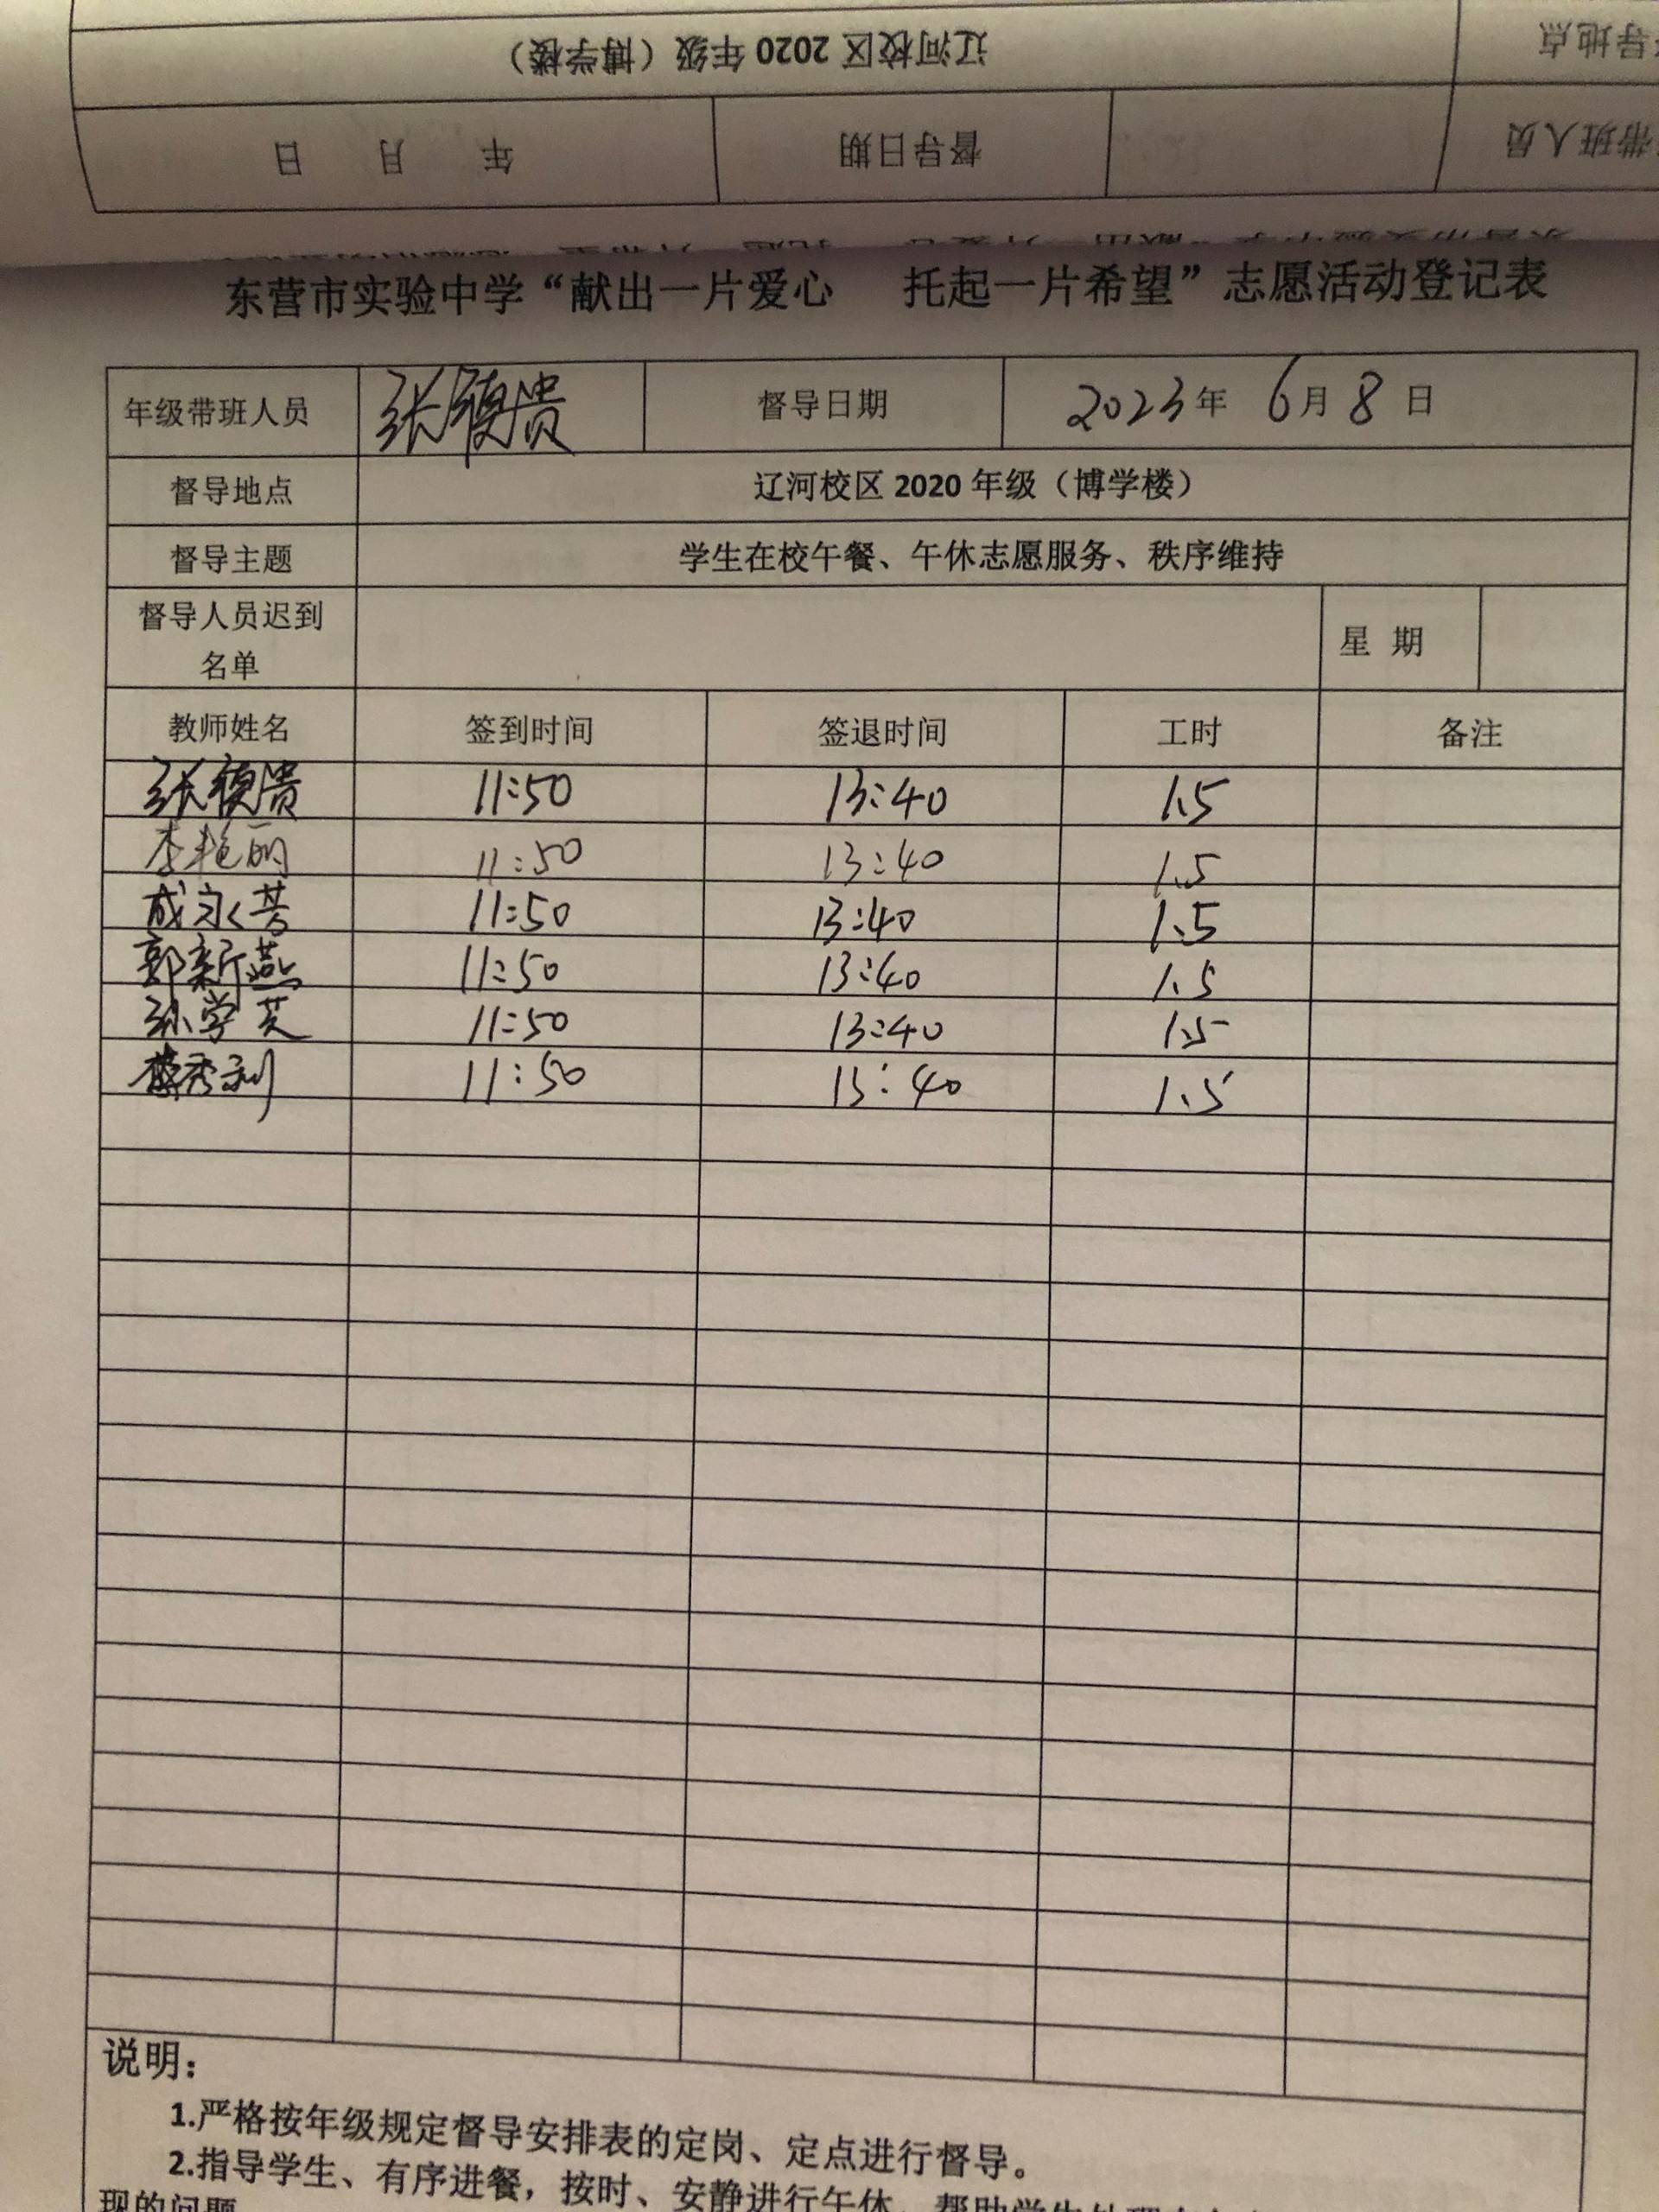 辽河校区 2020 年级（博学楼）
导地点
年 月 日
督导日期
带班人员
东营市实验中学“献出一片爱心 托起一片希望”志愿活动登记表
年级带班人员 张颜贵 督导日期 2023年 6月 8日
督导地点 辽河校区 2020 年级（博学楼）
督导主题 学生在校午餐、午休志愿服务、秩序维持
督导人员迟到
名单
星 期
教师姓名 签到时间 签退时间 工时 备注
张颜贵 11:50 13:40 1.5
李艳丽 11:50 13:40 1.5
成永芳 11:50 13:40 1.5
郭新燕 11:50 13:40 1.5
孙学芝 11:50 13:40 1.5
薛秀利 11:50 13:40 1.5
说明：
1.严格按年级规定督导安排表的定岗、定点进行督导。
2.指导学生、有序进餐，按时、安静进行午休，帮助学生处理
现的问题